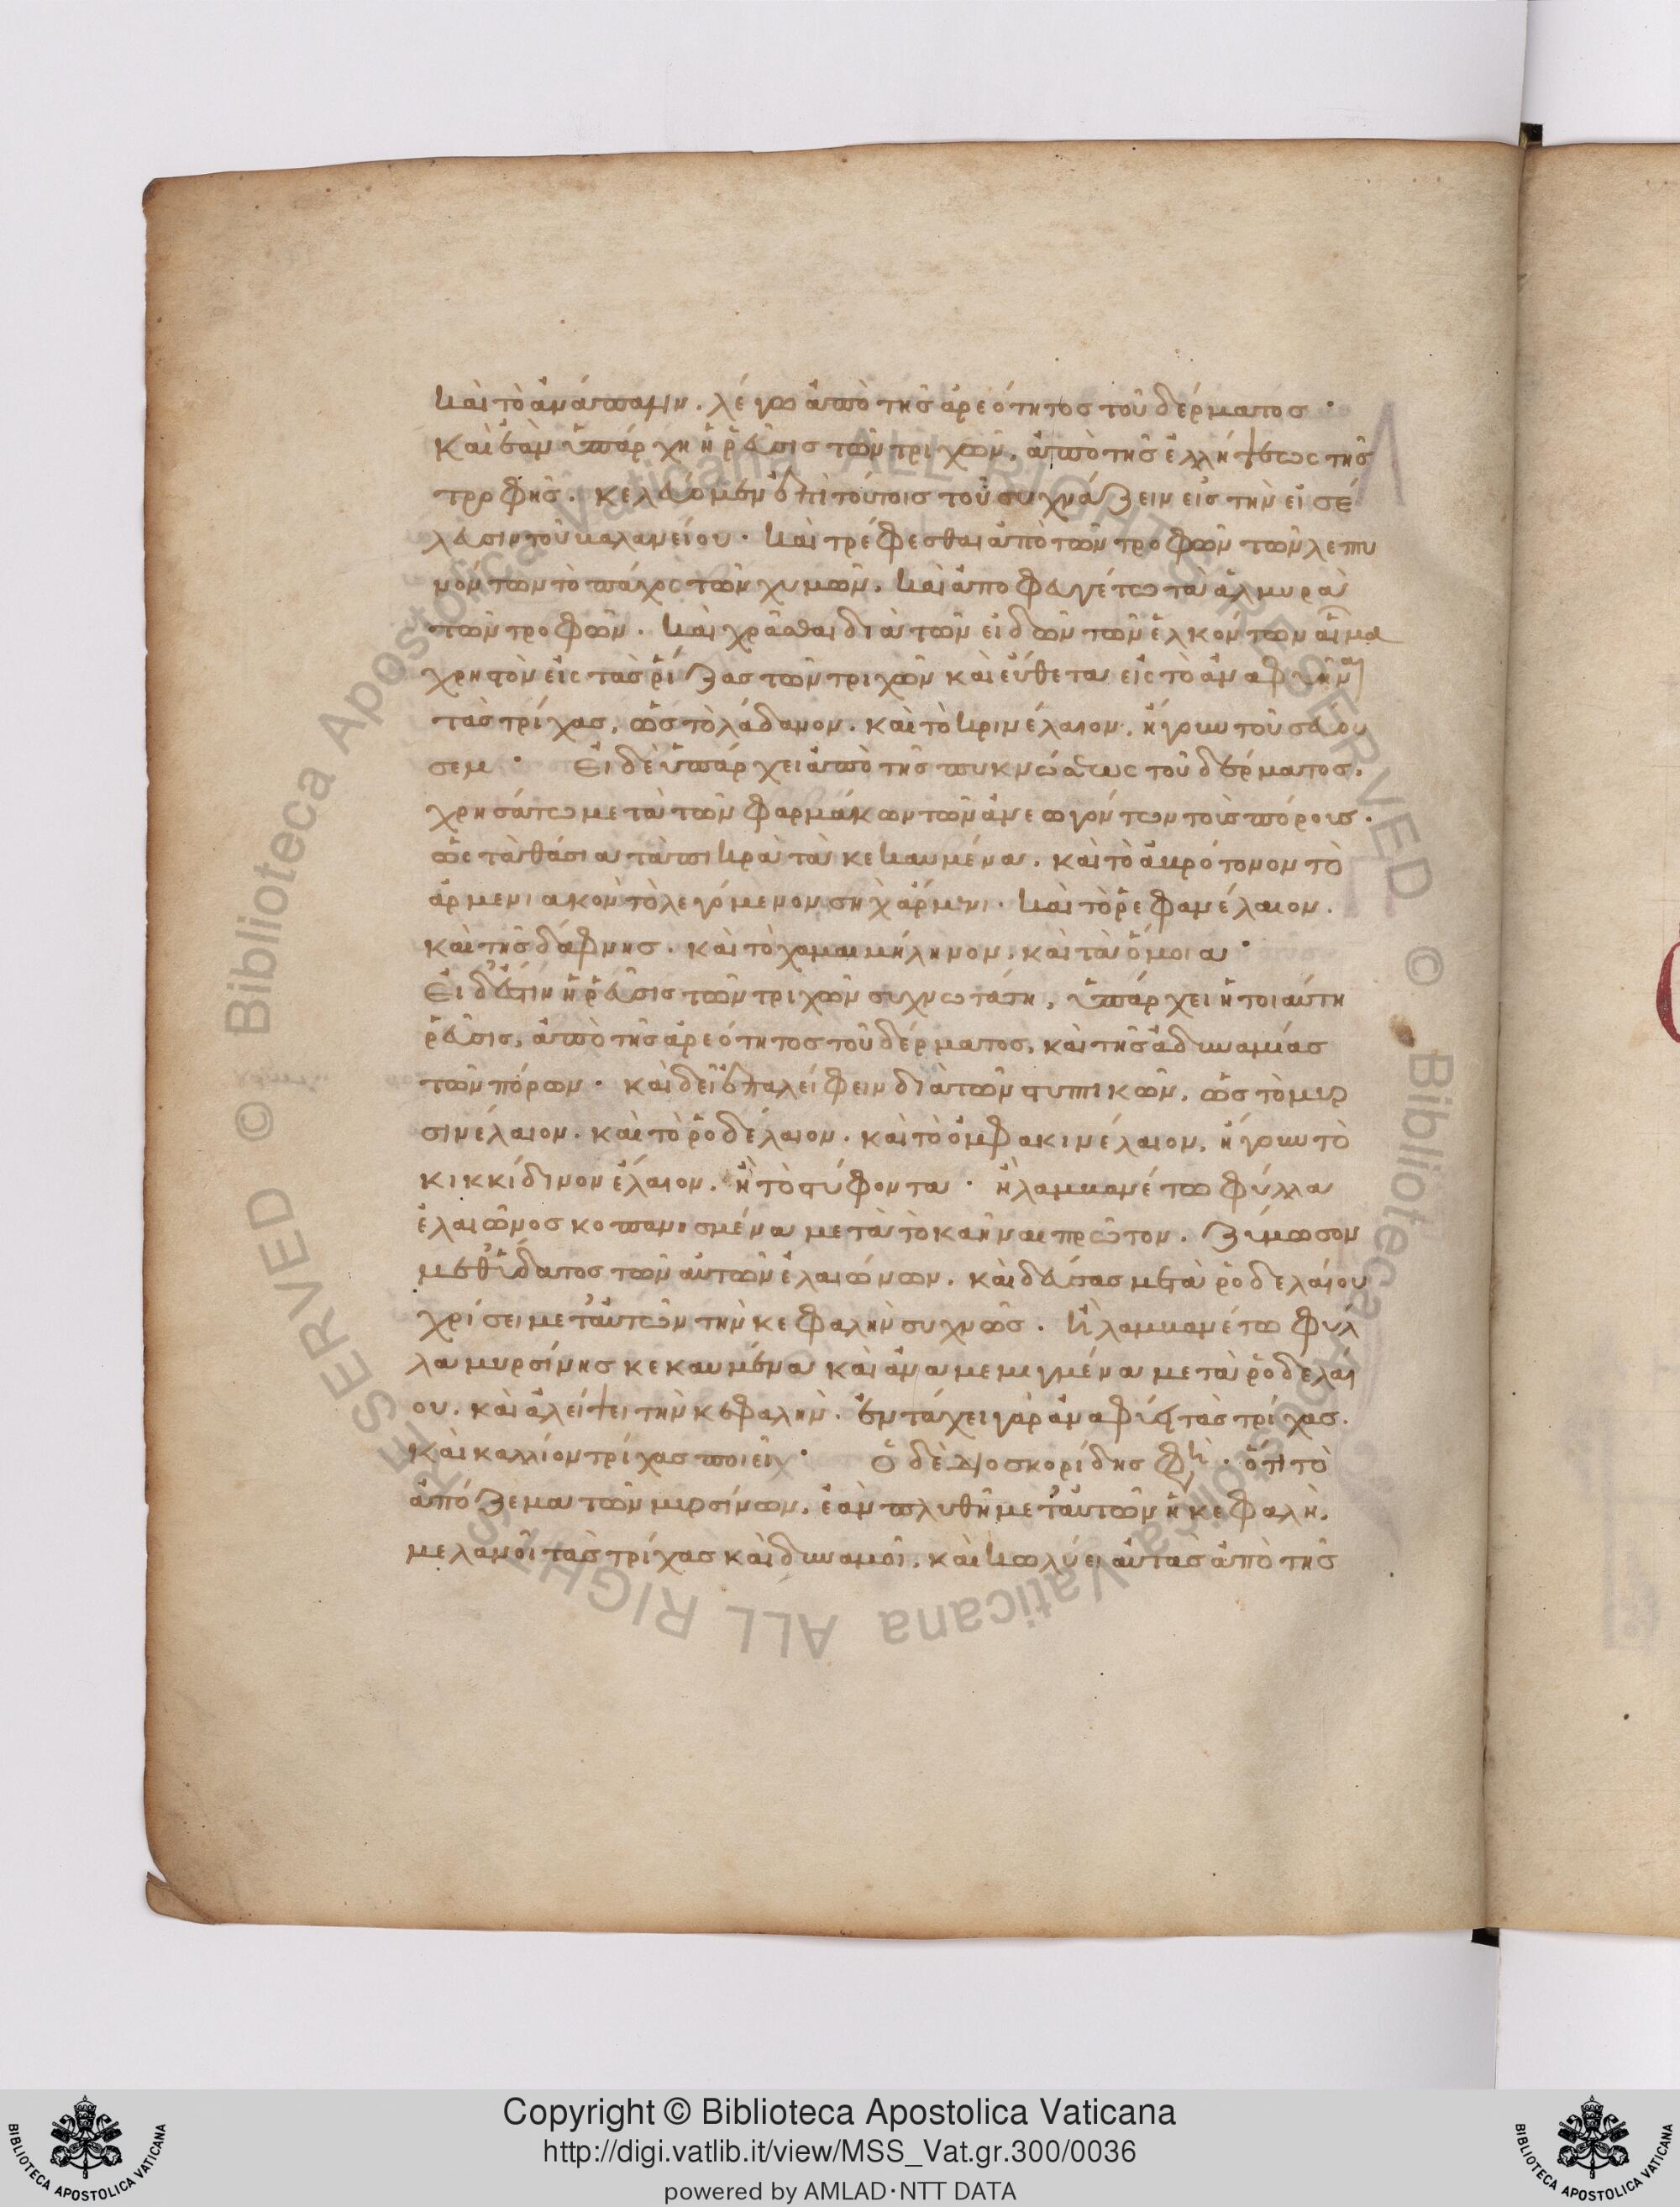 καὶ τὸ ἀνάπαλιν. λέγω ἀπὸ τῆς ἀρεότητος τοῦ δέρματος·
καὶ ἐὰν ὑπάρχη ἡ ῥεῦσις τῶν τριχῶν, ἀπὸ τῆς ἐλλήψεως τῆς
τροφῆς. κελεύομεν ἐπὶ τούτοις τοῦ συχνάζειν εἰς τὴν εἰσέ
λευσιν τοῦ βαλανείου. καὶ τρέφεσθαι ἀπὸ τῶν τροφῶν τῶν λεπτυ
νόντων τὸ πάχος τῶν χυμῶν. καὶ ἀποφευγέτω τὰ ἁλμυρὰ
τῶν τροφῶν. καὶ χρᾶσθαι διὰ τῶν εἰδῶν τῶν ἑλκόντων αἷμα
χρηστὸν εἰς τὰς ῥίζας τῶν τριχῶν καὶ εὔθετα εἰς τὸ ἀναφυῆναι
τὰς τρίχας, ὡς τὸ λάδανον. καὶ τὸ κρινέλαιον. ἤγουν τοῦ σαου
σεμ· Εἰ δὲ ὑπάρχει ἀπὸ τῆς πυκνώσεως τοῦ δέρματος.
χρησάτω μετὰ τῶν φαρμάκων τῶν ἀνεωγόντων τοὺς πόρους.
ὡς τὰ θάσια τὰ πικρὰ τὰ κεκαυμένα. καὶ τὸ ἀβρότονον τὸ
ἀρμενιακὸν τὸ λεγόμενον σηχ ἀρμενι. καὶ τὸ ῥεφανέλαιον.
καὶ τῆς δάφνης. καὶ τὸ χαμαιμήληνον, καὶ τὰ ὅμοια·
Εἰ δ' ἔστιν ἡ ῥεῦσις τῶν τριχῶν συχνωτάτη, ὑπάρχει ἡ τοιαύτη
ῥεῦσις, ἀπὸ τῆς ἀρεότητος τοῦ δέρματος, καὶ τῆς ἀδυναμίας
τῶν πόρων. καὶ δεῖ ἐπαλείφειν διὰ τῶν στυπτικῶν, ὡς τὸ μυρ
σινέλαιον. καὶ τὸ ῥοδέλαιον. καὶ τὸ ὀμφακινέλαιον, ἤγουν τὸ
κικκίδινον ἔλαιον. ἢ τὸ στύφοντα. ἢ λαμβανέτω φύλλα
ἐλαιῶνος κοπανισμένα μετὰ τὸ καῆναι πρῶτον. ζύμωσον
μεθ' ὕδατος τῶν αὐτῶν ἐλαιώνων. καὶ δεύσας μετὰ ῥοδελαίου
χρίσει μετ' αὐτῶν τὴν κεφαλὴν συχνῶς. ἢ λαμβανέτω φύλ
λα μυρσίνης κεκαυμένα καὶ ἀναμεμιγμένα μετὰ ῥοδελαί
ου. καὶ ἀλείψει τὴν κεφαλήν. ἐν τάχει γὰρ ἀναφύει τὰς τρίχας.
καὶ καλλίον τρίχας ποιεῖ· Ὁ δὲ Διοσκορίδης φη. ὅτι τὸ
ἀπόζεμα τῶν μυρσίνων. ἐὰν πλυθῆ μετ' αὐτῶν ἡ κεφαλή.
μελανοῖ τὰς τρίχας καὶ δυναμοῖ, καὶ κωλύει αὐτὰς ἀπὸ τῆς
Copyright © Biblioteca Apostolica Vaticana
http://digi.vatlib.it/view/MSS_Vat.gr.300/0036
powered by AMLAD·NTT DATA